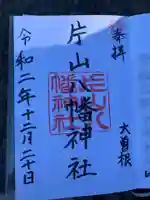 奉拝
大曽根
片山八幡神社
令和二年十二月二十日